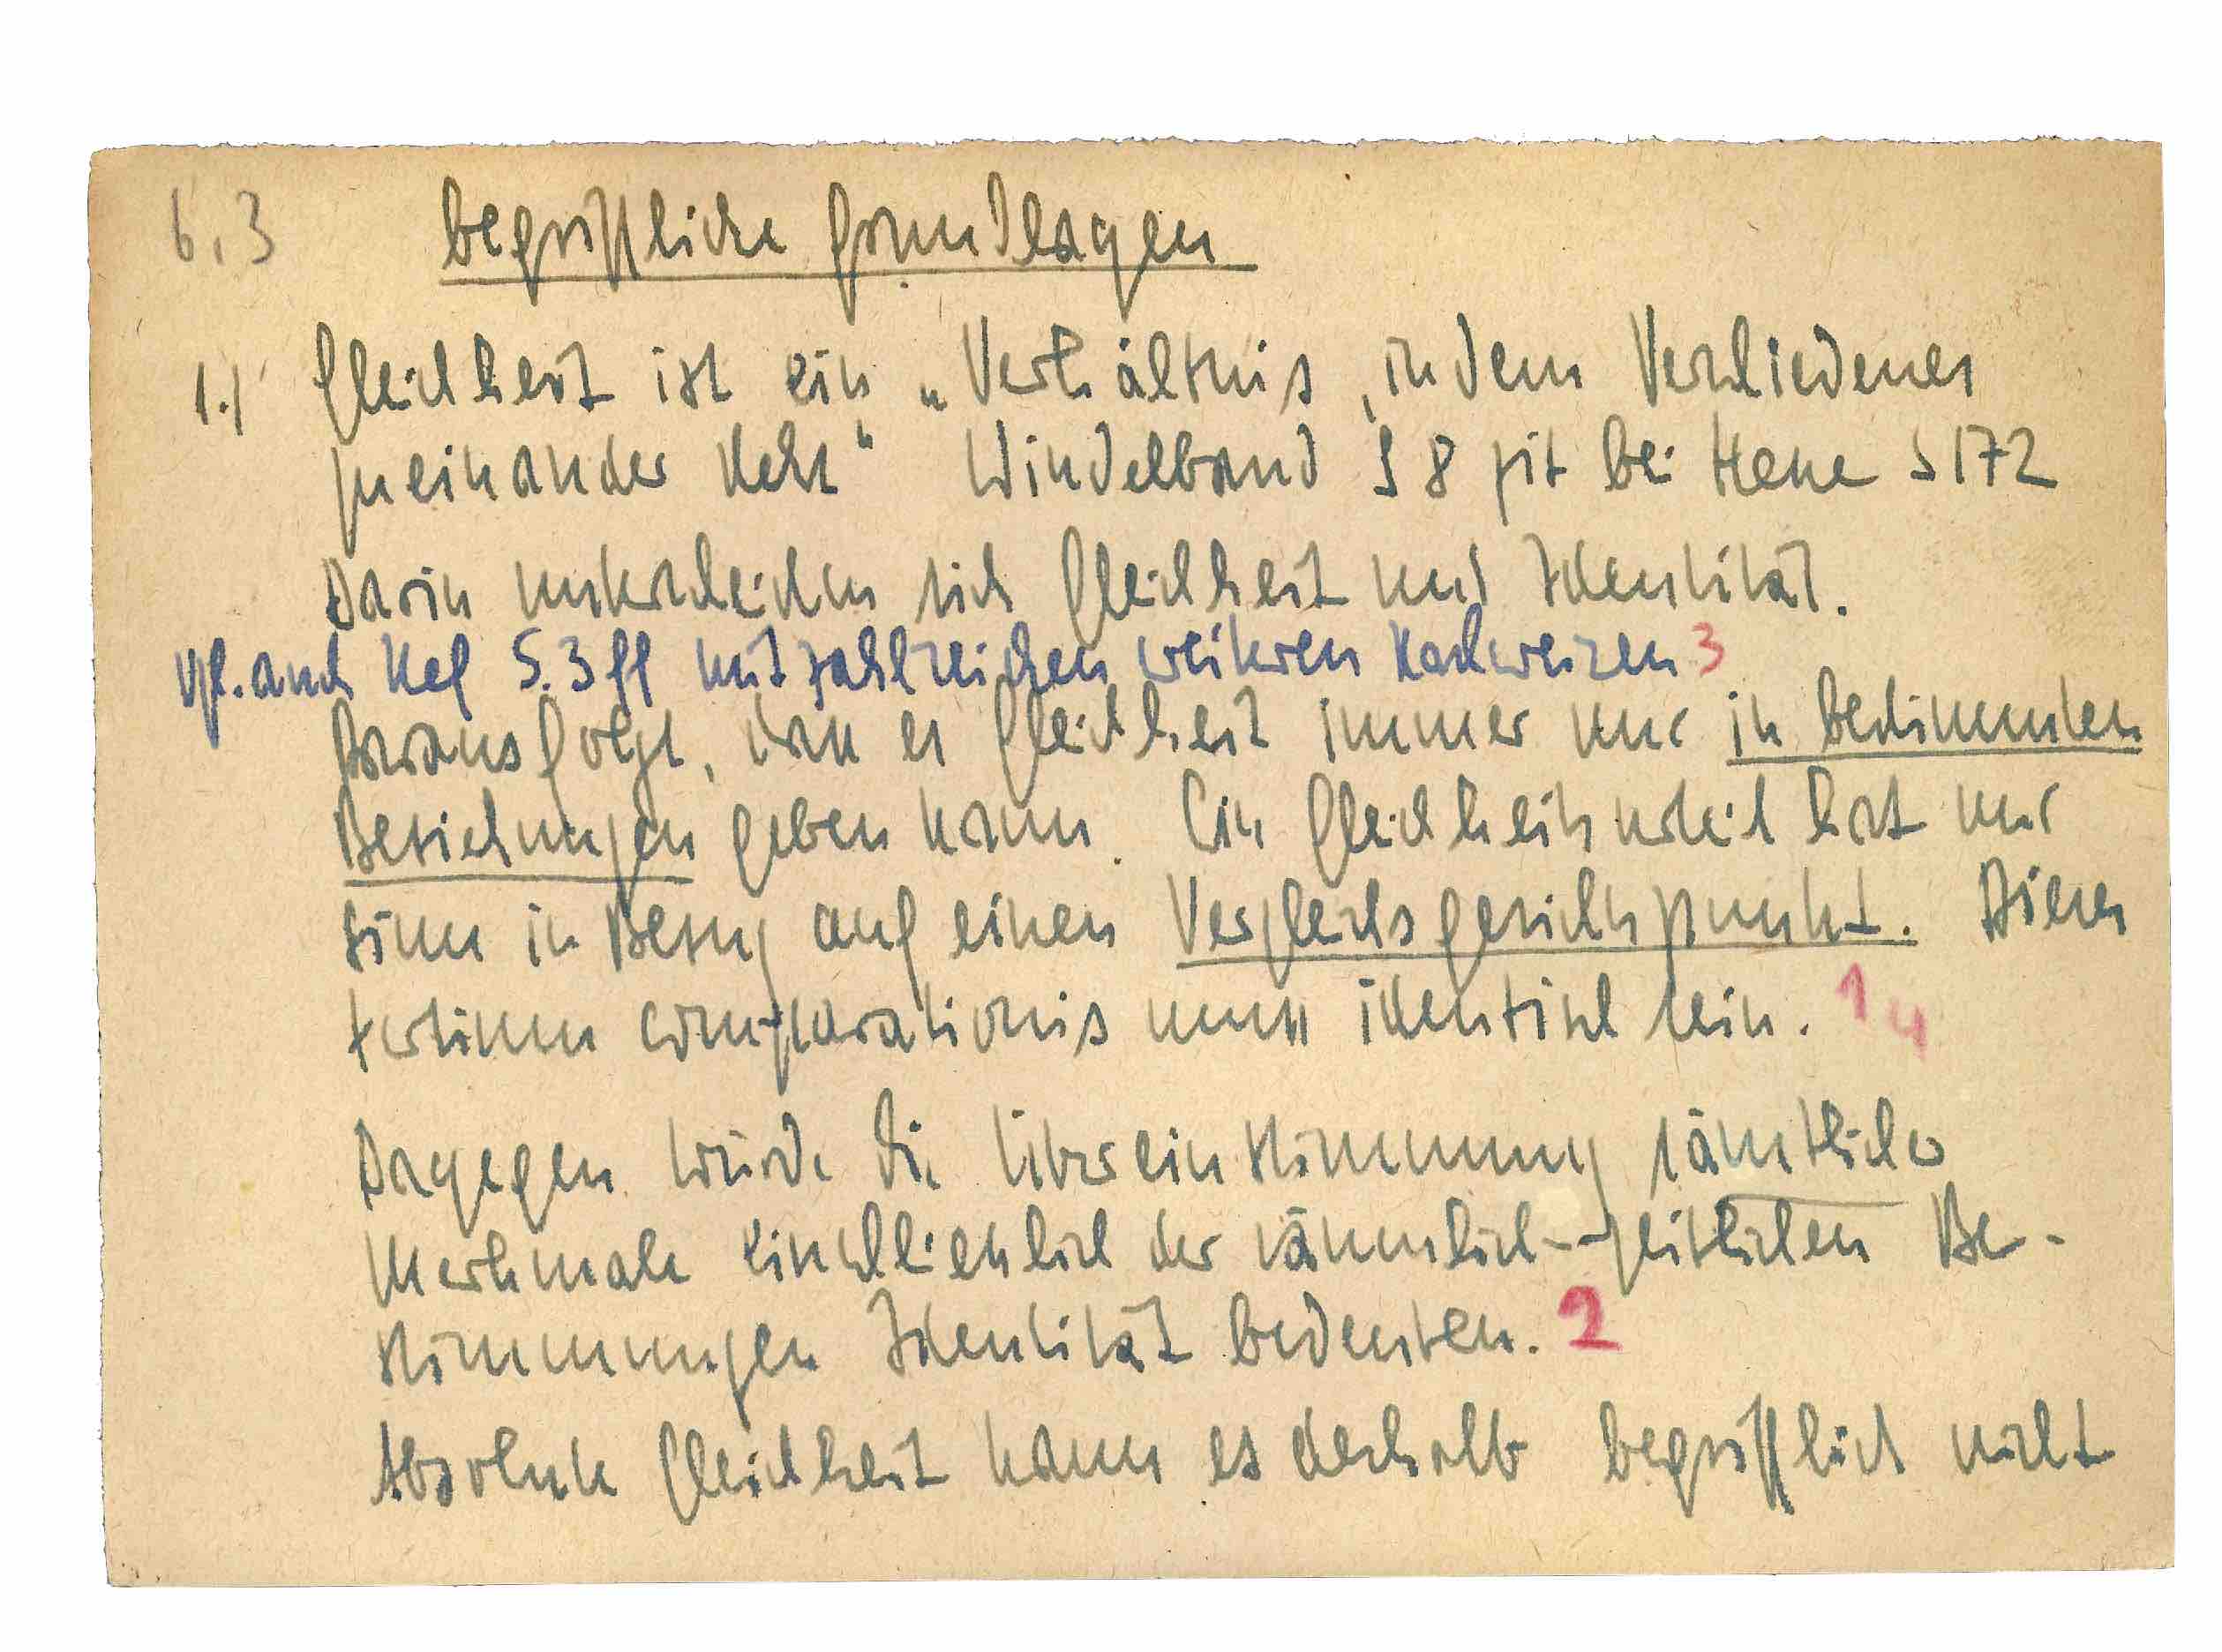 6,3 Begriffliche Grundlagen
1.) Gleichheit ist ein „Verhältnis, in dem Verschiedenes
zueinander steht" Windelband S 8 zit bei Hesse S 172
Darin unterscheiden sich Gleichheit und Identität.
vgl. auch Nef S. 3 ff mit zahlreichen weiteren Nachweisen 3
Daraus folgt, dass es Gleichheit immer nur in bestimmten
Beziehungen geben kann. Ein Gleichheitsurteil hat nur
Sinn in Bezug auf einen Vergleichsgesichtspunkt. Dieses
tertium comparationis muss identisch sein. 1 4
Dagegen würde die Übereinstimmung sämtlicher
Merkmale einschliesslich der räumlich-zeitlichen Be-
stimmungen Identität bedeuten. 2
Absolute Gleichheit kann es deshalb begrifflich nicht